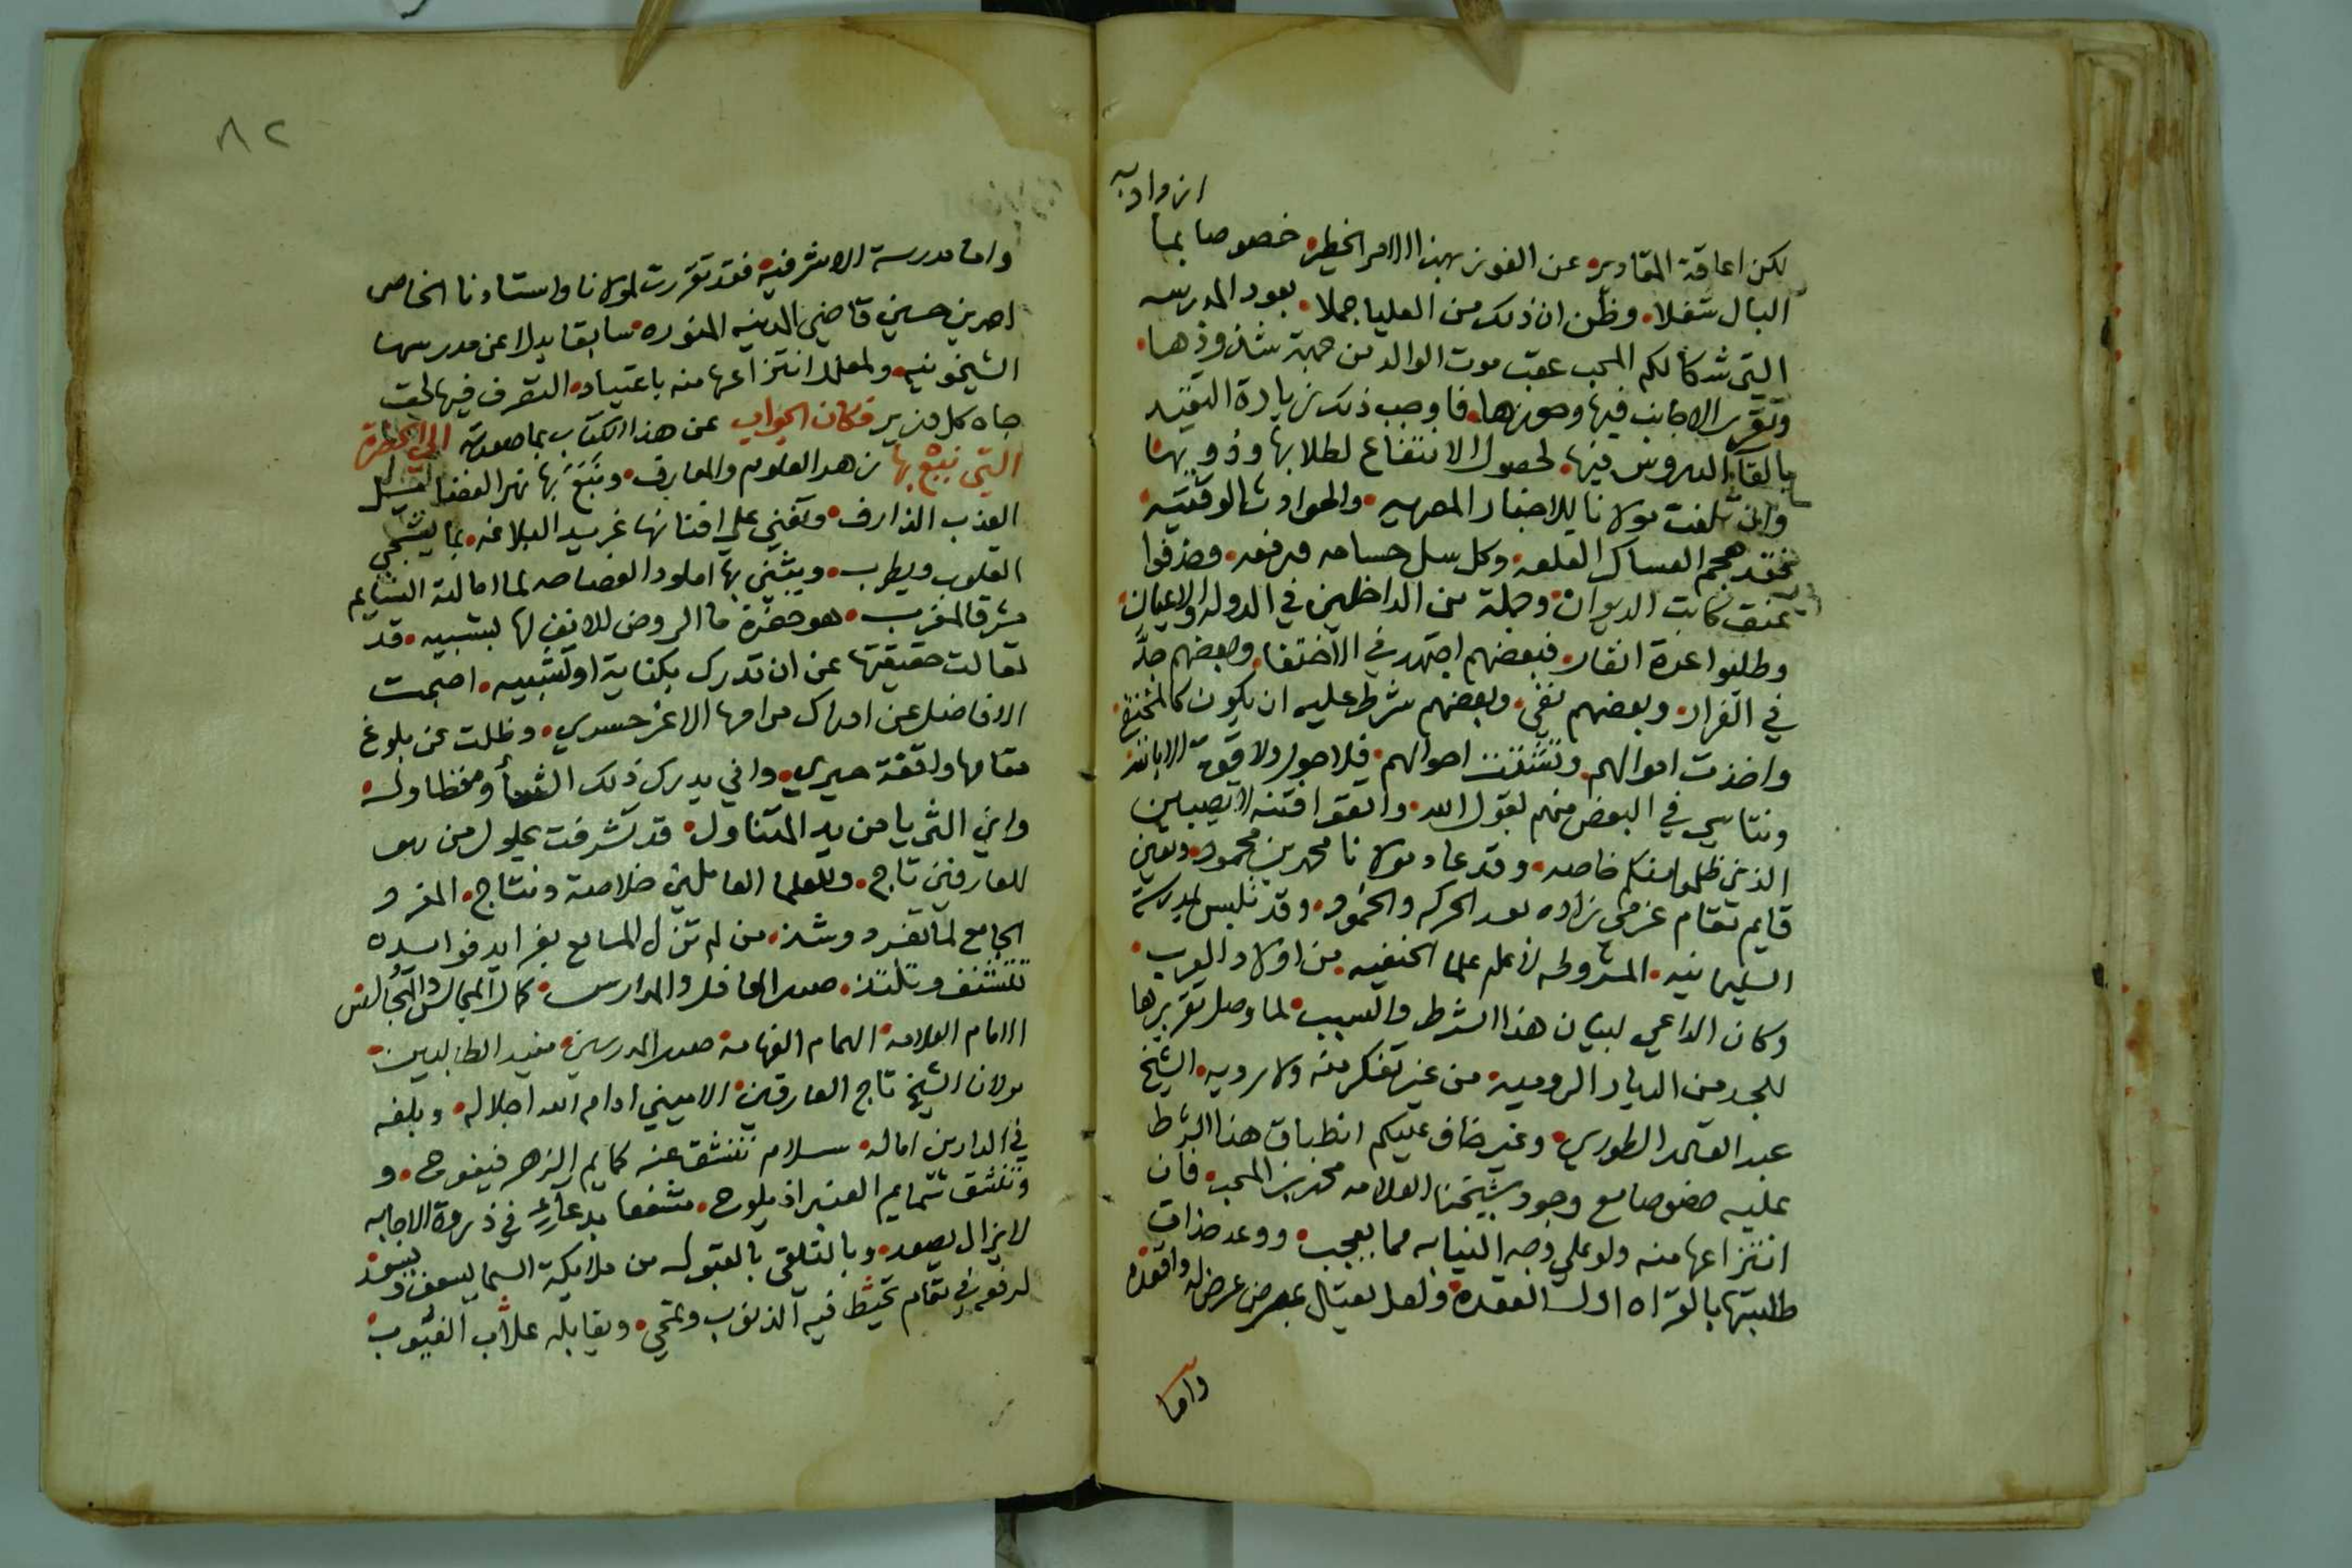 ازدادبه
لكن اعاقة المقادير عن الفوز بهذا الامر الخطير خصوصا بما
البال شغلا وظن ان ذلك من العليا جملا بعود المدرسه
التي شد كالكم المحب عقب موت الوالد من جهة شذوذها
وتقرير الاجانب فيها وحوزها فاوجب ذلك زيادة التقيد
بالقاء الدروس فيها لحصول الانتفاع لطلابها وذويها
وان تلفت مولانا للاخبار المصريه والحوادث الوقتيه
فقد هجم العساكر القلعه وكل سل حسامه ورفعه وخرقوا
كاتب الديوان وجملة من الداخلين في الدوله والاعيان
وطلبوا عدة انفار فبعضهم اجتهد في الاختفا وبعضهم جد
في الفرار وبعضهم نفي وبعضهم شرط عليه ان يكون كالمختفي
واخذت اموالهم وتشتت احوالهم فلا حول ولا قوة الا بالله
ونتاسي في البعض منهم لقول الله واتقوا فتنة لا تصيبن
الذين ظلموا منكم خاصه وقد عاد مولانا محمد بن محمود وتعين
قايم مقام عزمي زاده بعد الحركه والخمود وقد تلبس بمدرسة
السليمانيه المشروطه لاعلم علما الحنفيه من اولاد العرب
وكان الداعي لبيان هذا الشرط والسبب لما وصل تقريرها
للجد من الديار الروميه من غير تفكر منه ولا رويه الشيخ
عبد القادر الطوري وغير خاف عليكم انطباق هذا الشرط
عليه خصوصا مع وجود شيخنا العلامه محمد بن المحب فان
انتزاعها منه ولو علي وجه النيابه مما يعجب ووعد حذاق
طلبتها بالقراه اول القعده ولعل يعتال بمرض عرض له واقعده
واما
٨٢
واما مدرسة الاشرفيه فقد تقررت لمولانا واستاذنا الخاص
احمد بن حسين قاضي المدينه المنوره سابقا بدلا عن مدرسها
الشيخونيه ولعل انتزاعها منه باعتياد التصرف فيها تحت
جاه كل وزير فكان الجواب عن هذا الكتاب بما صورته الي الحضرة
التي نبع بها زهد العلوم والمعارف ونبع بها نهر الفضايل
العذب الذارف وتغني علي افنانها غريد البلاغه بما يشجي
القلوب ويطرب ويثني بها املود الفصاحه لما امالته النسايم
مشرقا لمغرب هو حضرة ما الروض الانيق لها بشبيه قد
تعالت حقيقتها عن ان تدرك بكناية او تشبيه اصبحت
الافاضل عن ادراك مرامها الاعز حسري وظلت عن بلوغ
مقامها واقفة حيري واني يدرك ذلك الشاو مخطاوله
واين الثريا من يد المتناول قد تشرفت بحلول من هو
للعارفين تاج وللعلما العاملين خلاصة ونتاج المفرد
الجامع لما تفرد وشذ من لم تزل المسامع بفرايد فوايده
تتشنف وتلتذ صدر المحافل والمدارس كمال المجالس والمجالس
الامام العلامه الهمام الفهامه صدر المدرسين مفيد الطالبين
مولانا الشيخ تاج العارفين الاميني ادام الله اجلاله وبلغه
في الدارين اماله سلام تنشق عنه كمايم الزهر فيفوح و
وتنشق شمايم العنبر اذ يلوح مشفعا بدعاء في ذروة الاجابه
لا يزال يصعد وبالتلقي بالقبول من ملايكة السما يسعف ويسعد
لرفعه في مقام تحبط فيه الذنوب وتمحي ويقابله علام الغيوب